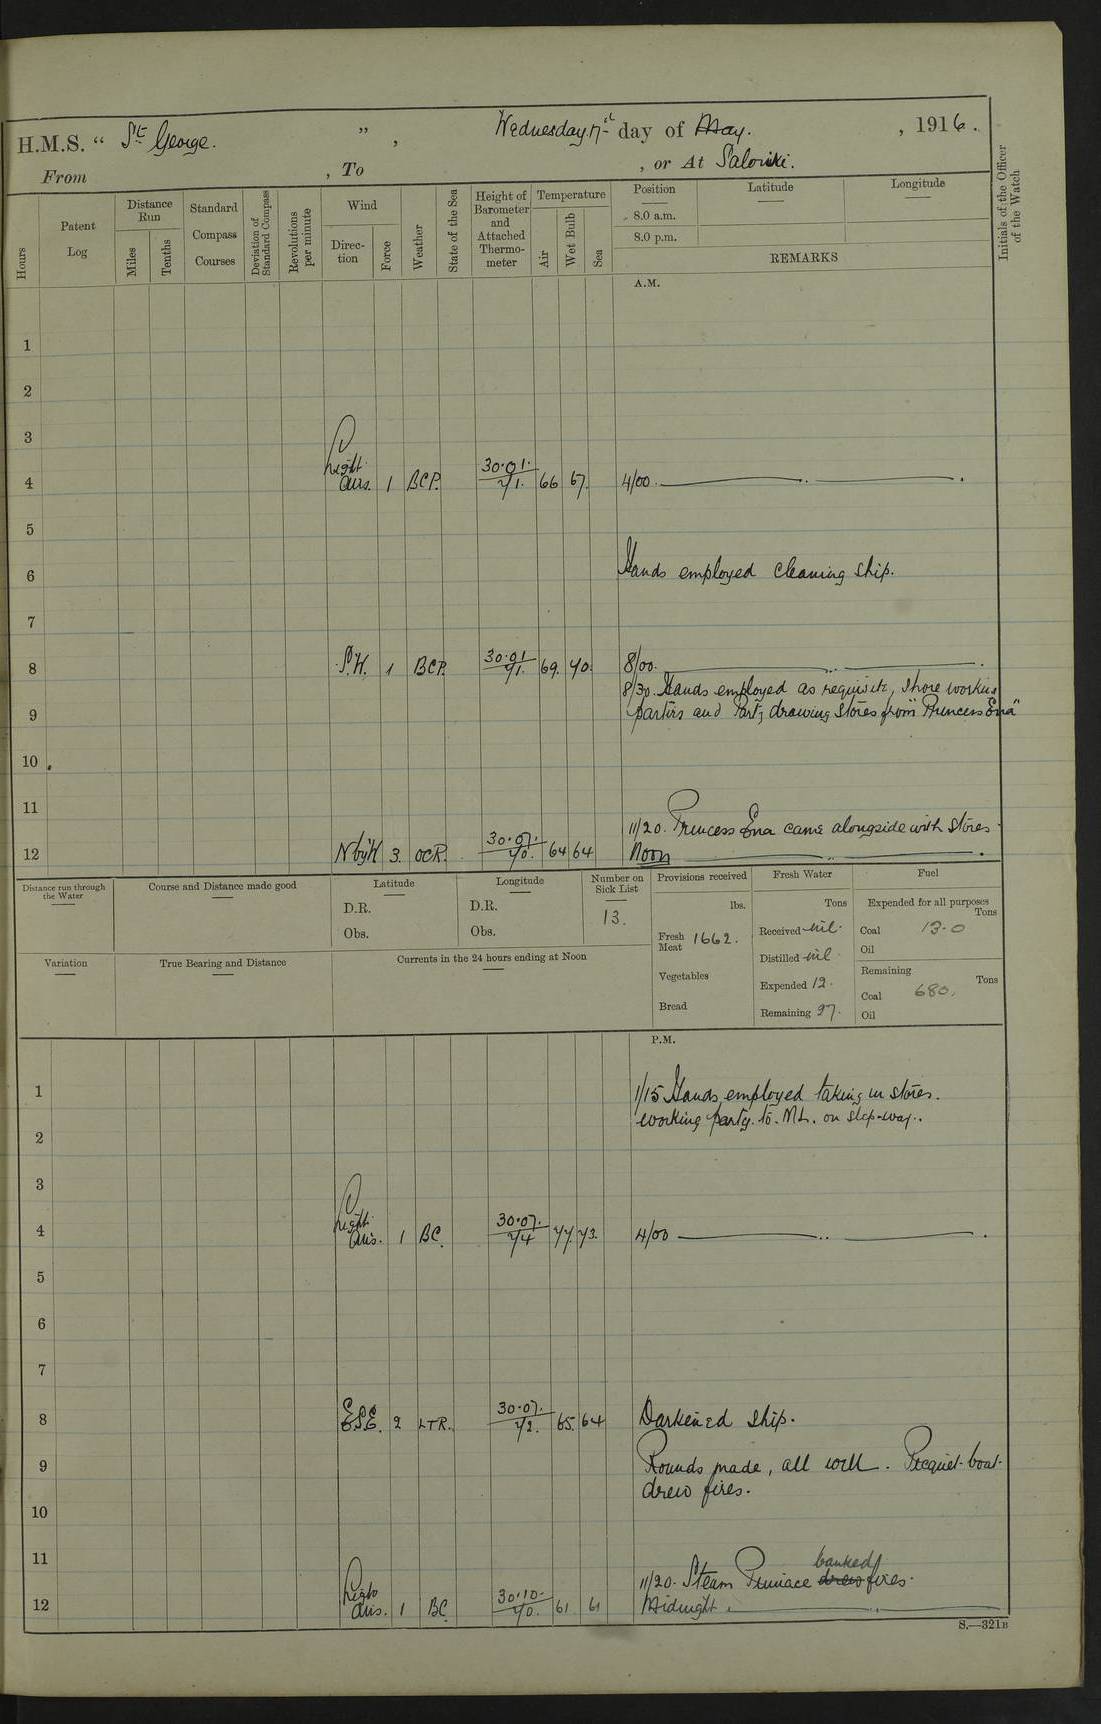 H.M.S. “ St George. ” , Wednesday 17th day of May. , 1916.
From , To , or At Salonki.
Hours
Patent Log
Distance Run
Miles
Tenths
Standard Compass Courses
Deviation of Standard Compass
Revolutions per minute
Wind
Direction
Force
Weather
State of the Sea
Height of Barometer and Attached Thermometer
Temperature
Air
Wet Bulb
Sea
Position
Latitude
Longitude
8.0 a.m.
8.0 p.m.
REMARKS
Initials of the Officer of the Watch
A.M.
1
2
3
4 Light airs. 1 BCP. 30.01. 71. 66 67. 4/00.
5
6 Hands employed cleaning ship.
7
8 S.W. 1 BCP. 30.01 71. 69. 70. 8/00.
8/30. Hands employed as requisite, shore working
9 parties and Party drawing stores from "Princess Ena"
10
11
11/20. Princess Ena came alongside with stores.
12 N by W 3. OCR. 30.07. 70. 64 64 Noon
Distance run through the Water
Course and Distance made good
Latitude
D.R.
Obs.
Longitude
D.R.
Obs.
Number on Sick List
13.
Provisions received
lbs.
Fresh Meat 1662.
Vegetables
Bread
Fresh Water
Tons
Received nil.
Distilled nil
Expended 12.
Remaining 97.
Fuel
Expended for all purposes
Tons
Coal 13.0
Oil
Remaining
Tons
Coal 680.
Oil
Variation
True Bearing and Distance
Currents in the 24 hours ending at Noon
P.M.
1 1/15 Hands employed taking in stores.
working party to. ML. on slip-way.
2
3
4 Light airs. 1 BC. 30.07. 74 77. 73. 4/00
5
6
7
8 ESE. 2 LTR. 30.07. 72. 65. 64 Darkened ship.
9 Rounds made, all well. Picquet-boat.
drew fires.
10
11
banked
11/20. Steam Pinnace drew fires.
12 Light airs. 1 BC. 30.10. 70. 61 61 Midnight.
S.—321B